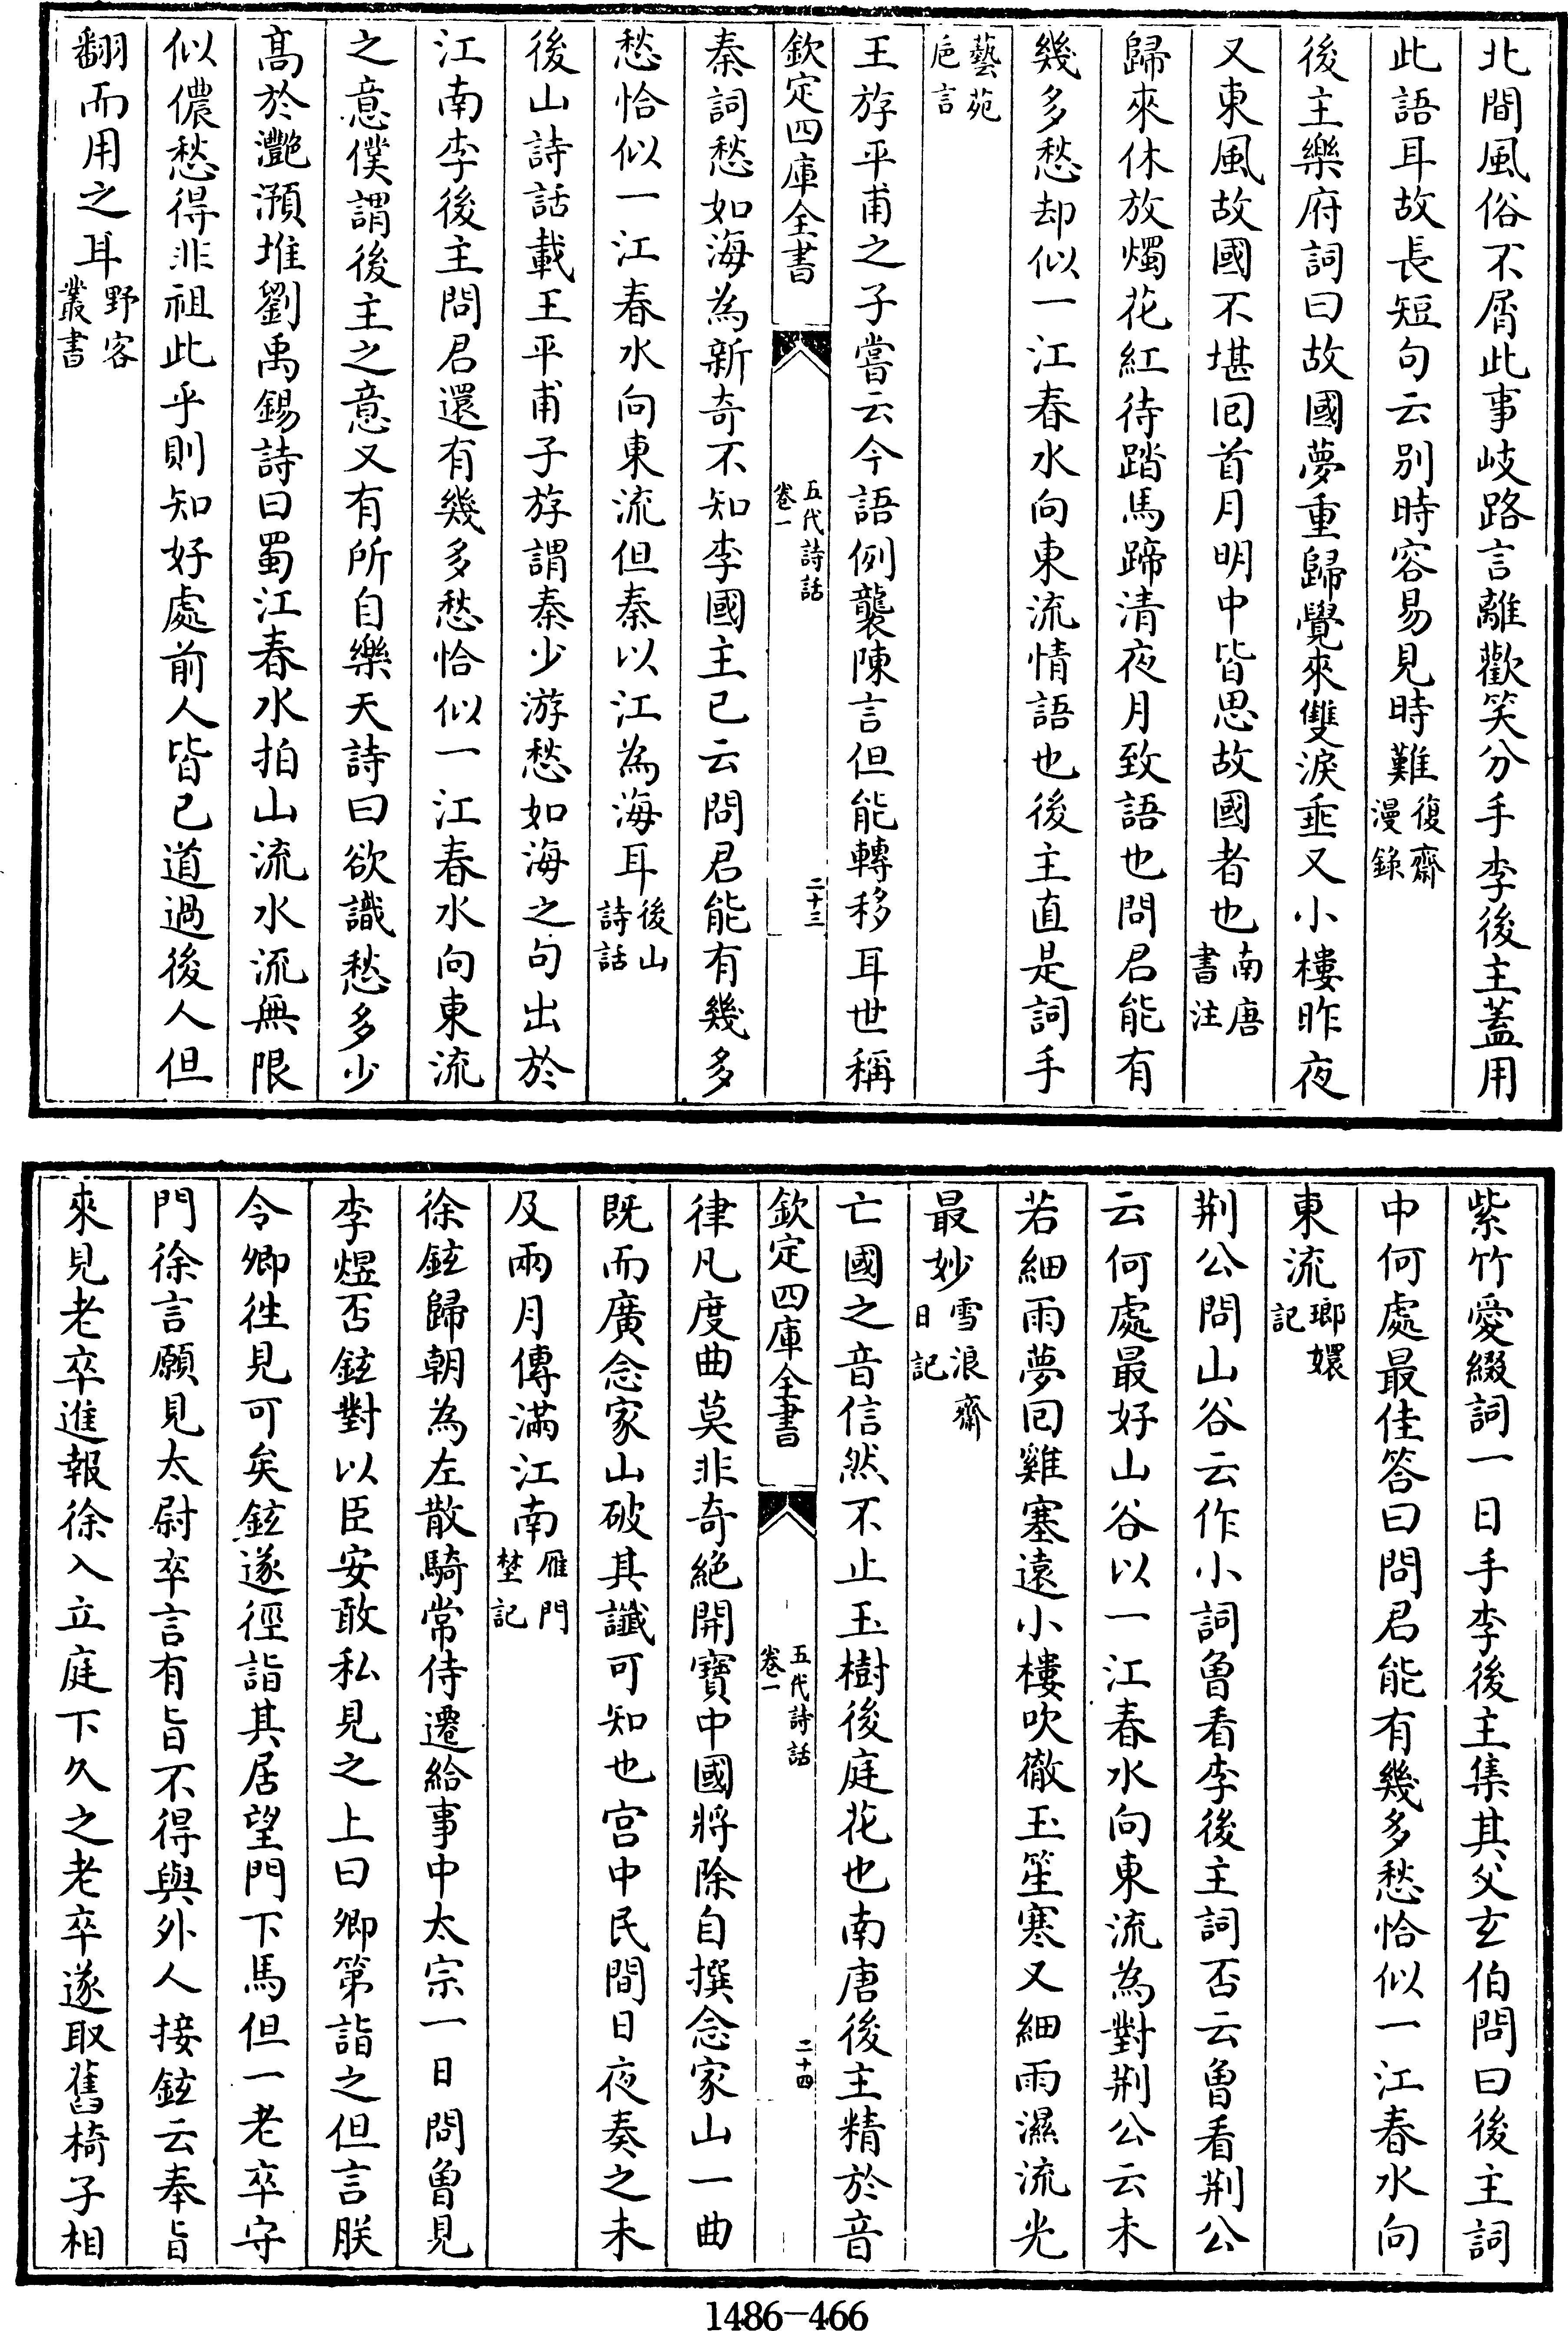 北間風俗不屑此事岐路言離歡笑分手李後主蓋用
此語耳故長短句云別時容易見時難復齋漫錄
後主樂府詞曰故國夢重歸覺來雙淚垂又小樓昨夜
又東風故國不堪囘首月明中皆思故國者也南唐書注
歸來休放燭花紅待踏馬蹄清夜月致語也問君能有
幾多愁却似一江春水向東流情語也後主直是詞手
藝苑巵言
王斿平甫之子嘗云今語例襲陳言但能轉移耳世稱
欽定四庫全書 五代詩話卷一 二十三
秦詞愁如海為新奇不知李國主已云問君能有幾多
愁恰似一江春水向東流但秦以江為海耳後山詩話
後山詩話載王平甫子斿謂秦少游愁如海之句出於
江南李後主問君還有幾多愁恰似一江春水向東流
之意僕謂後主之意又有所自樂天詩曰欲識愁多少
髙於灔澦堆劉禹錫詩曰蜀江春水拍山流水流無限
似儂愁得非祖此乎則知好處前人皆已道過後人但
翻而用之耳野客叢書
紫竹愛綴詞一日手李後主集其父玄伯問曰後主詞
中何處最佳答曰問君能有幾多愁恰似一江春水向
東流瑯嬛記
荆公問山谷云作小詞曾看李後主詞否云曾看荆公
云何處最好山谷以一江春水向東流為對荆公云未
若細雨夢囘雞塞遠小樓吹徹玉笙寒又細雨濕流光
最妙雪浪齋日記
亡國之音信然不止玉樹後庭花也南唐後主精於音
欽定四庫全書 五代詩話卷一 二十四
律凡度曲莫非奇絶開寶中國將除自撰念家山一曲
既而廣念家山破其讖可知也宫中民間日夜奏之未
及兩月傳滿江南雁門埜記
徐鉉歸朝為左散騎常侍遷給事中太宗一日問曾見
李煜否鉉對以臣安敢私見之上曰卿第詣之但言朕
令卿徃見可矣鉉遂徑詣其居望門下馬但一老卒守
門徐言願見太尉卒言有旨不得與外人接鉉云奉旨
來見老卒進報徐入立庭下久之老卒遂取舊椅子相
1486-466